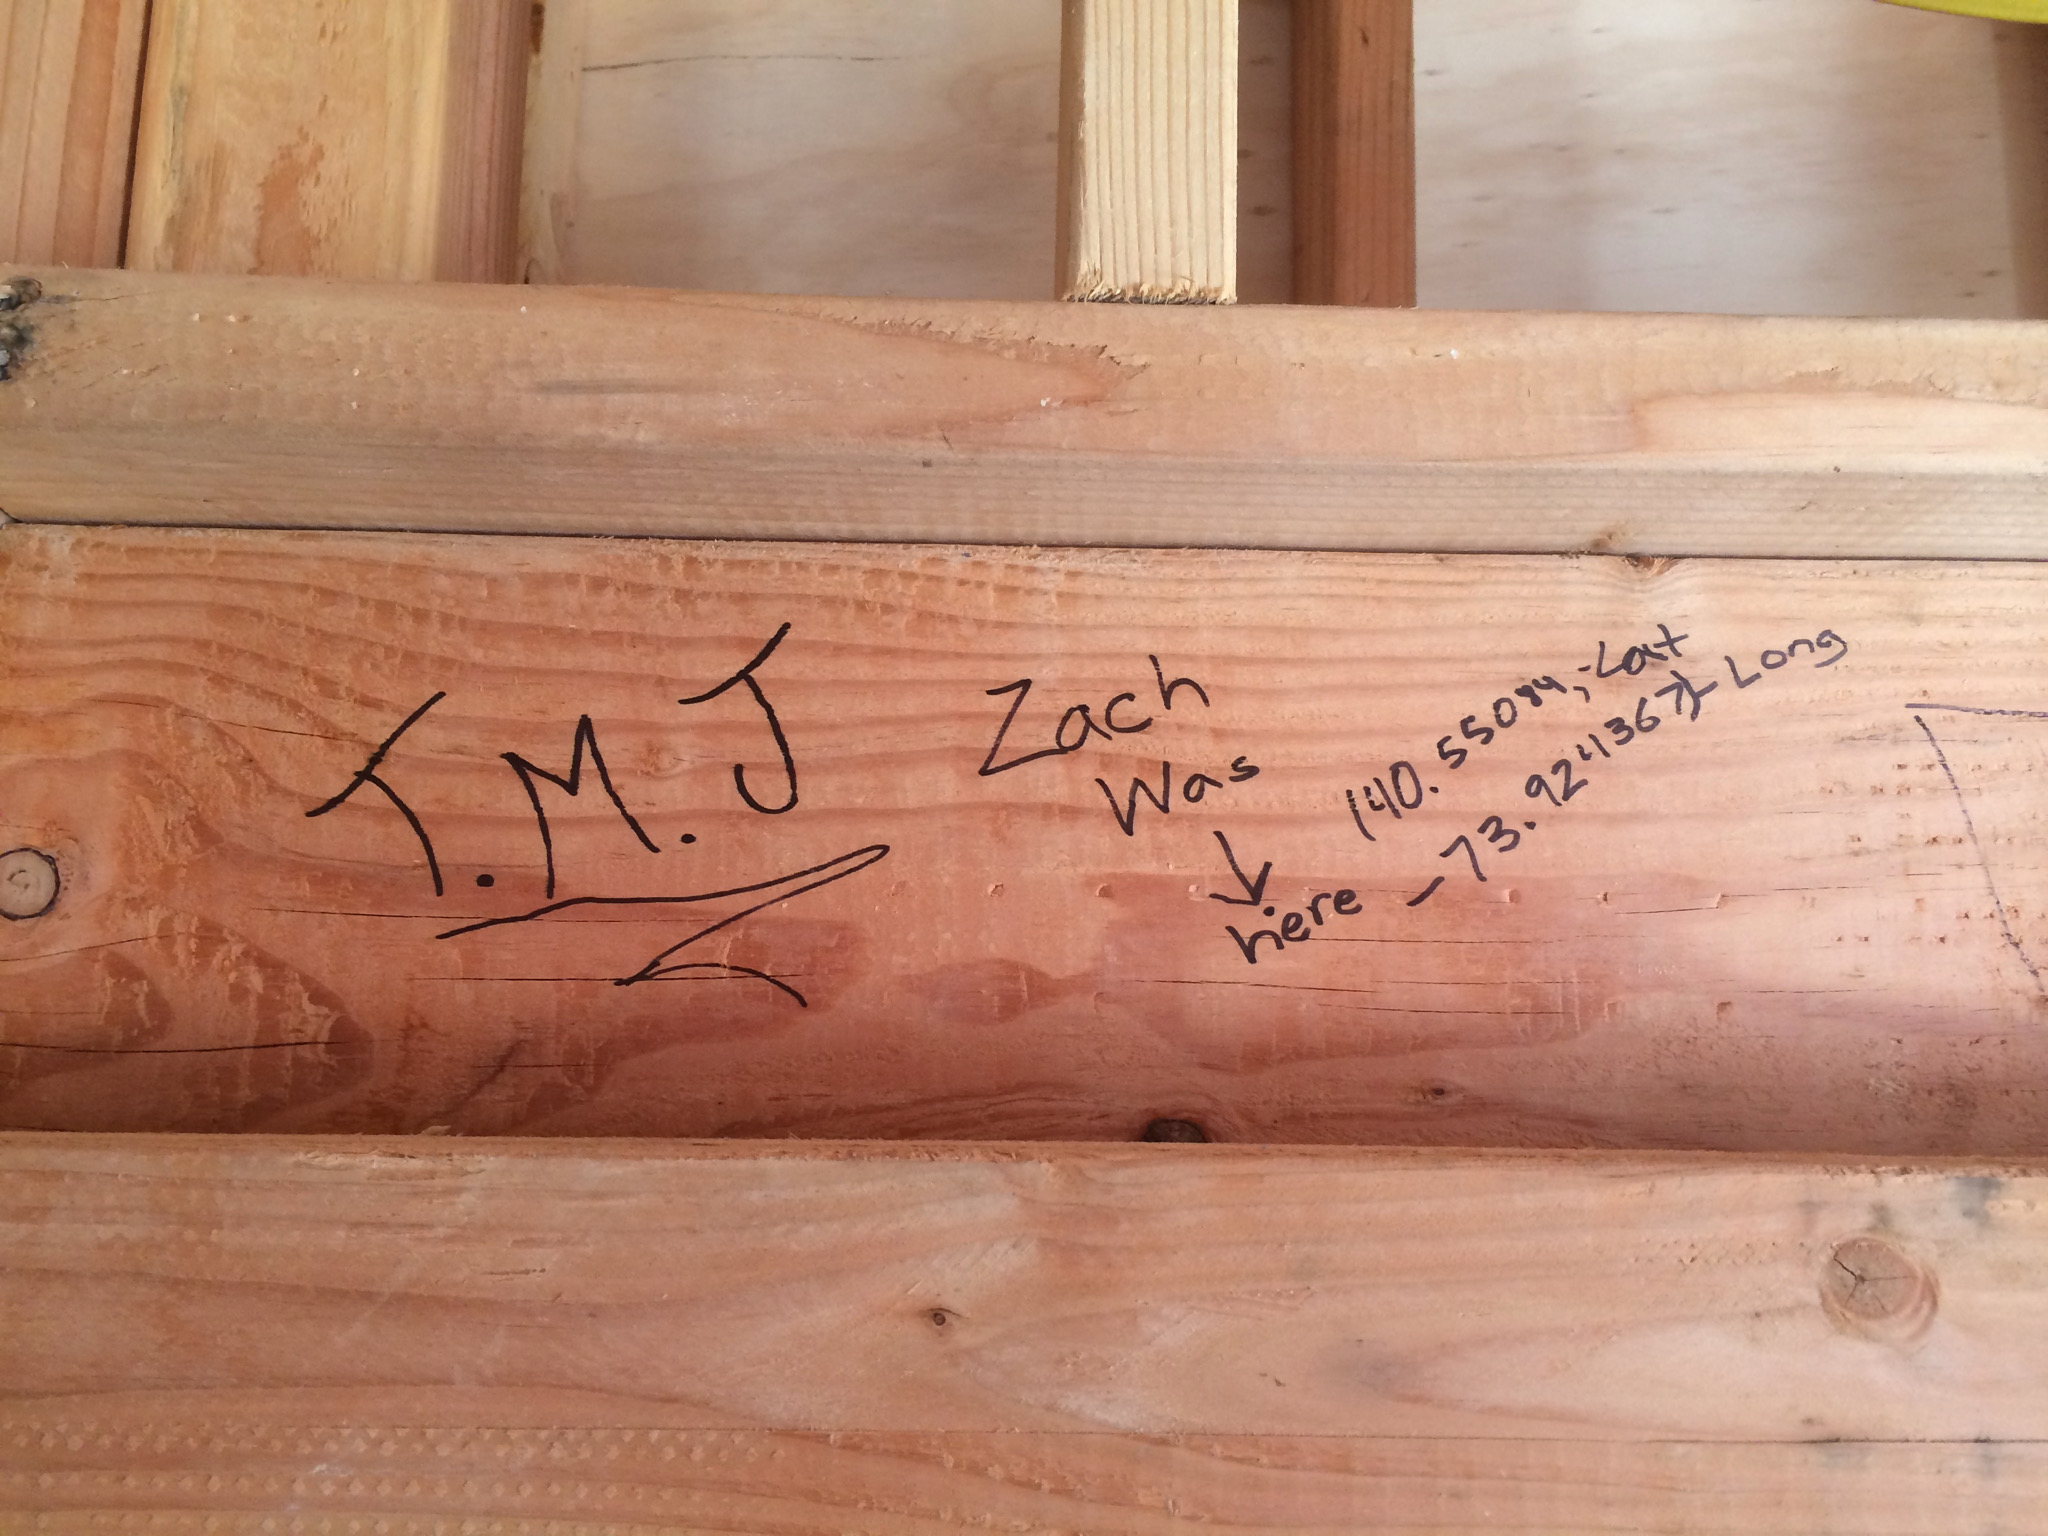 T.M.J
Zach
Was
here
140.55084,-Lat
-73.9241367}-Long